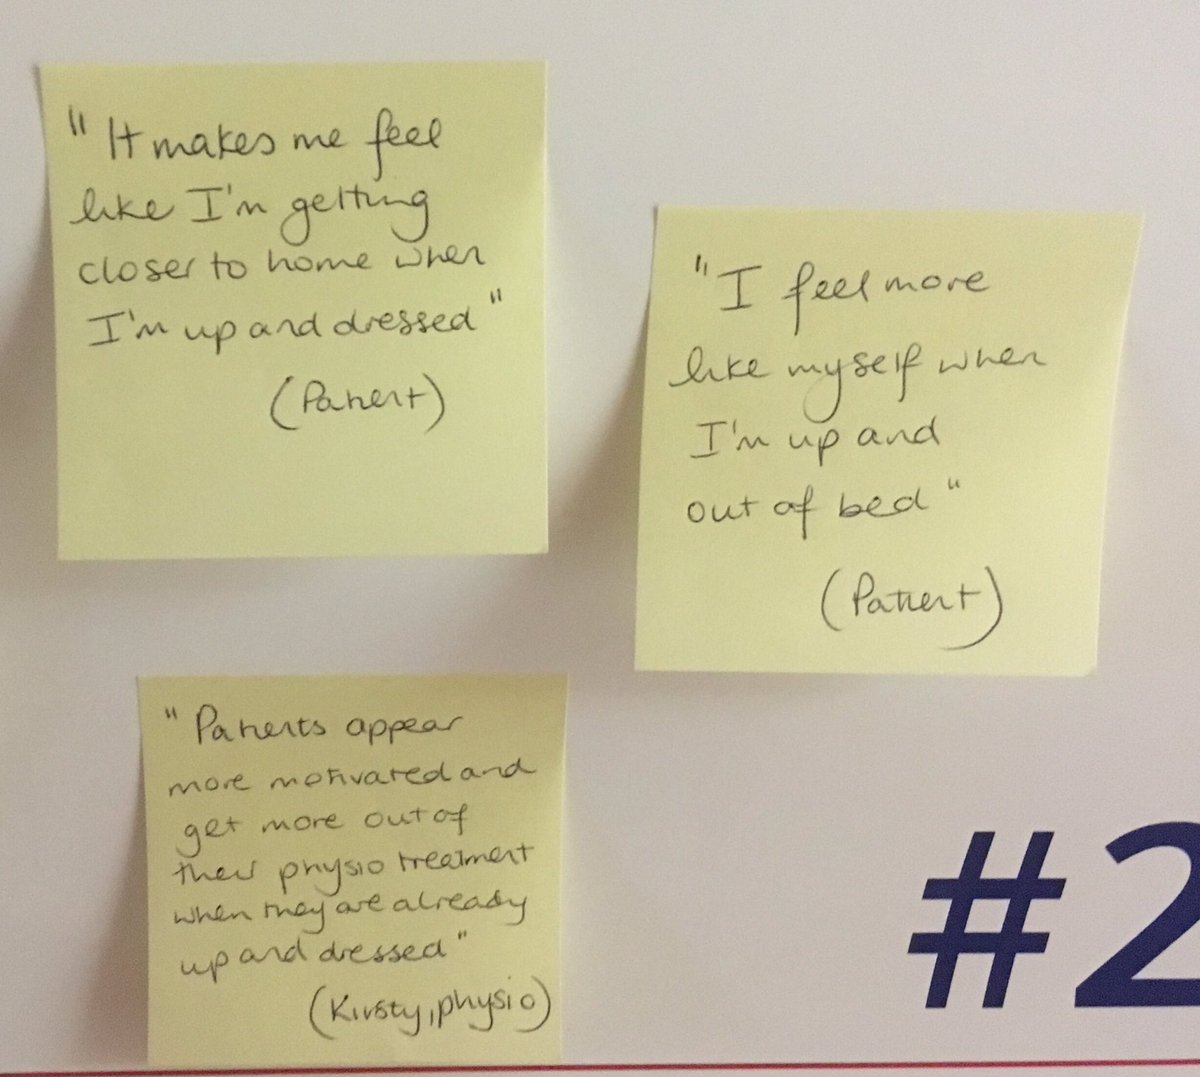 "It makes me feel
like I'm getting
closer to home when
I'm up and dressed"
(Patient)
"I feel more
like myself when
I'm up and
out of bed"
(Patient)
"Patients appear
more motivated and
get more out of
their physio treatment
when they are already
up and dressed"
(Kirsty, physio)
#2